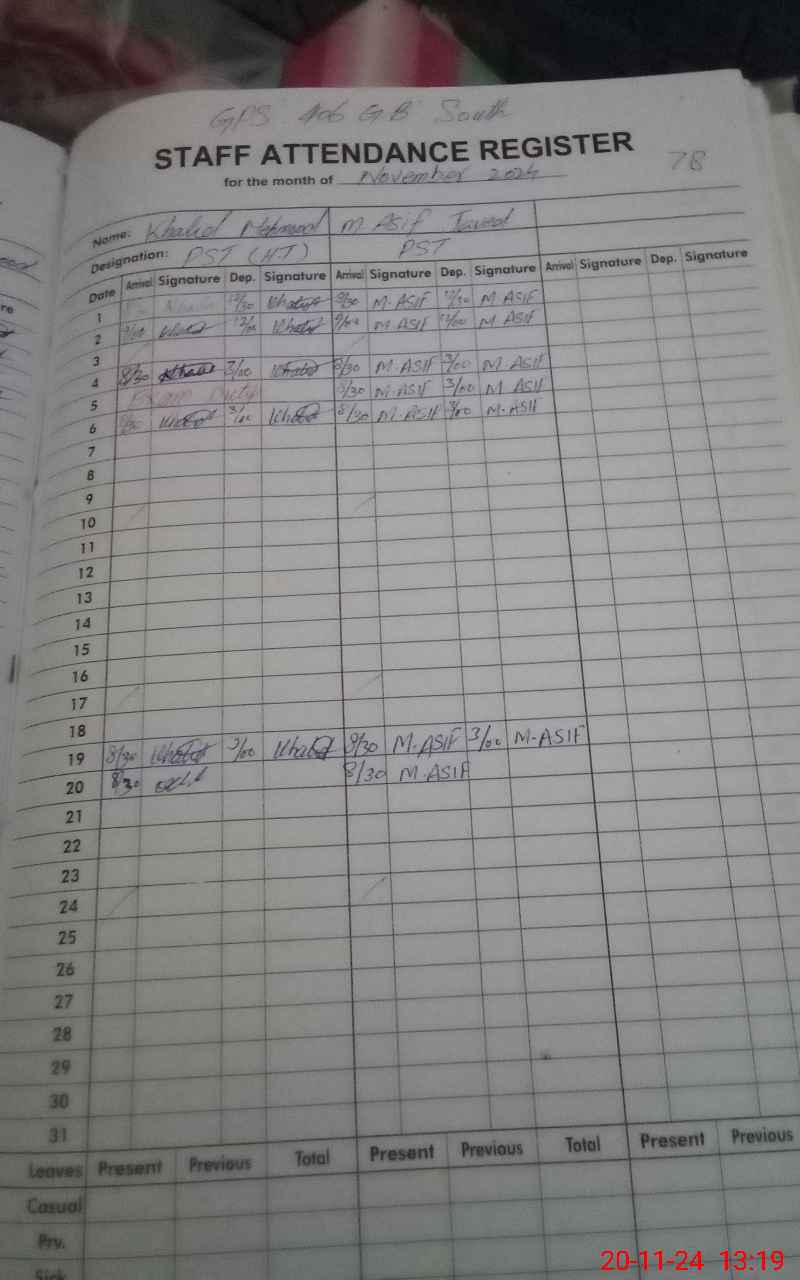 GPS 406 GB South
STAFF ATTENDANCE REGISTER
78
for the month of November 2024
Name: Khalid Mehmood M Asif Javed
Designation: PST (HT) PST
Date Arrival Signature Dep. Signature Arrival Signature Dep. Signature Arrival Signature Dep. Signature
1 12/30 Khalid 8/30 M-ASIF 12/30 M ASIF
2 9/00 Khalid 12/00 Khalid 9/00 M ASIF 12/00 M ASIF
3
4 8/30 Khalid 3/00 Khalid 8/30 M ASIF 3/00 M ASIF
5 Exam Duty 8/30 M ASIF 3/00 M ASIF
6 8/30 Khalid 3/00 Khalid 8/30 M.ASIF 3/00 M-ASIF
7
8
9
10
11
12
13
14
15
16
17
18
19 8/30 Khalid 3/00 Khalid 8/30 M-ASIF 3/00 M-ASIF
20 8/30 8/30 M-ASIF
21
22
23
24
25
26
27
28
29
30
31
Leaves Present Previous Total Present Previous Total Present Previous
Casual
Prv.
Sick
20-11-24 13:19